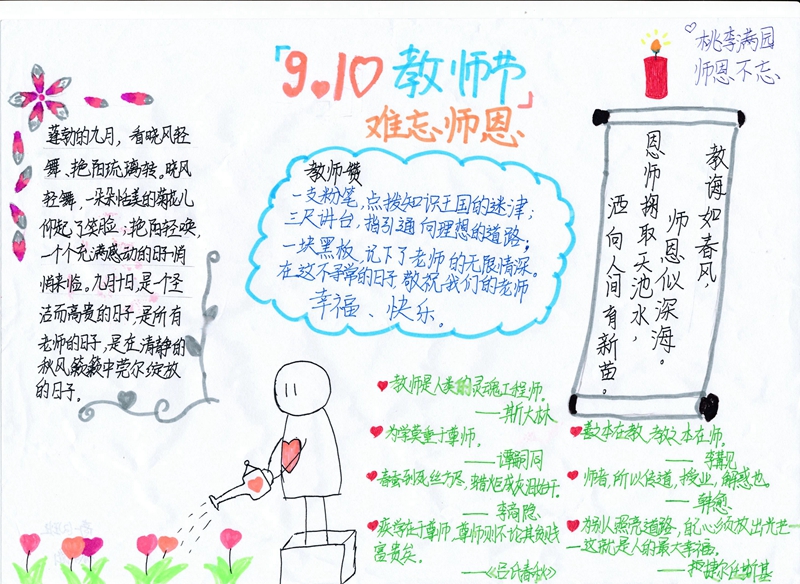 「9.10 教师节」
难忘师恩
桃李满园
师恩不忘
蓬勃的九月，看晓风轻
舞、艳阳琉璃转。晓风
轻舞，一朵朵恬美的菊花儿
仰起了笑脸；艳阳轻唤，
一个个充满感动的日子悄
悄来临。九月十日，是一个圣
洁而高贵的日子，是所有
老师的日子，是在清静的
秋风簌簌中莞尔绽放
的日子。
教师赞
一支粉笔，点拨知识王国的迷津；
三尺讲台，指引通向理想的道路；
一块黑板，记下了老师的无限情深。
在这不寻常的日子敬祝我们的老师
幸福、快乐。
教诲如春风，
师恩似深海。
恩师掬取天池水，
洒向人间有新苗。
教师是人类的灵魂工程师。
——斯大林
为学莫重于尊师。
——谭嗣同
春蚕到死丝方尽，蜡炬成灰泪始干。
——李商隐
疾学在于尊师，尊师则不论其贫贱
富贵矣。
——《吕氏春秋》
教之本在师。
师者，所以传道，授业，解惑也。
——韩愈
为别人照亮道路，自己必须放出光芒
——这就是人的最大幸福。
——捷尔任斯基